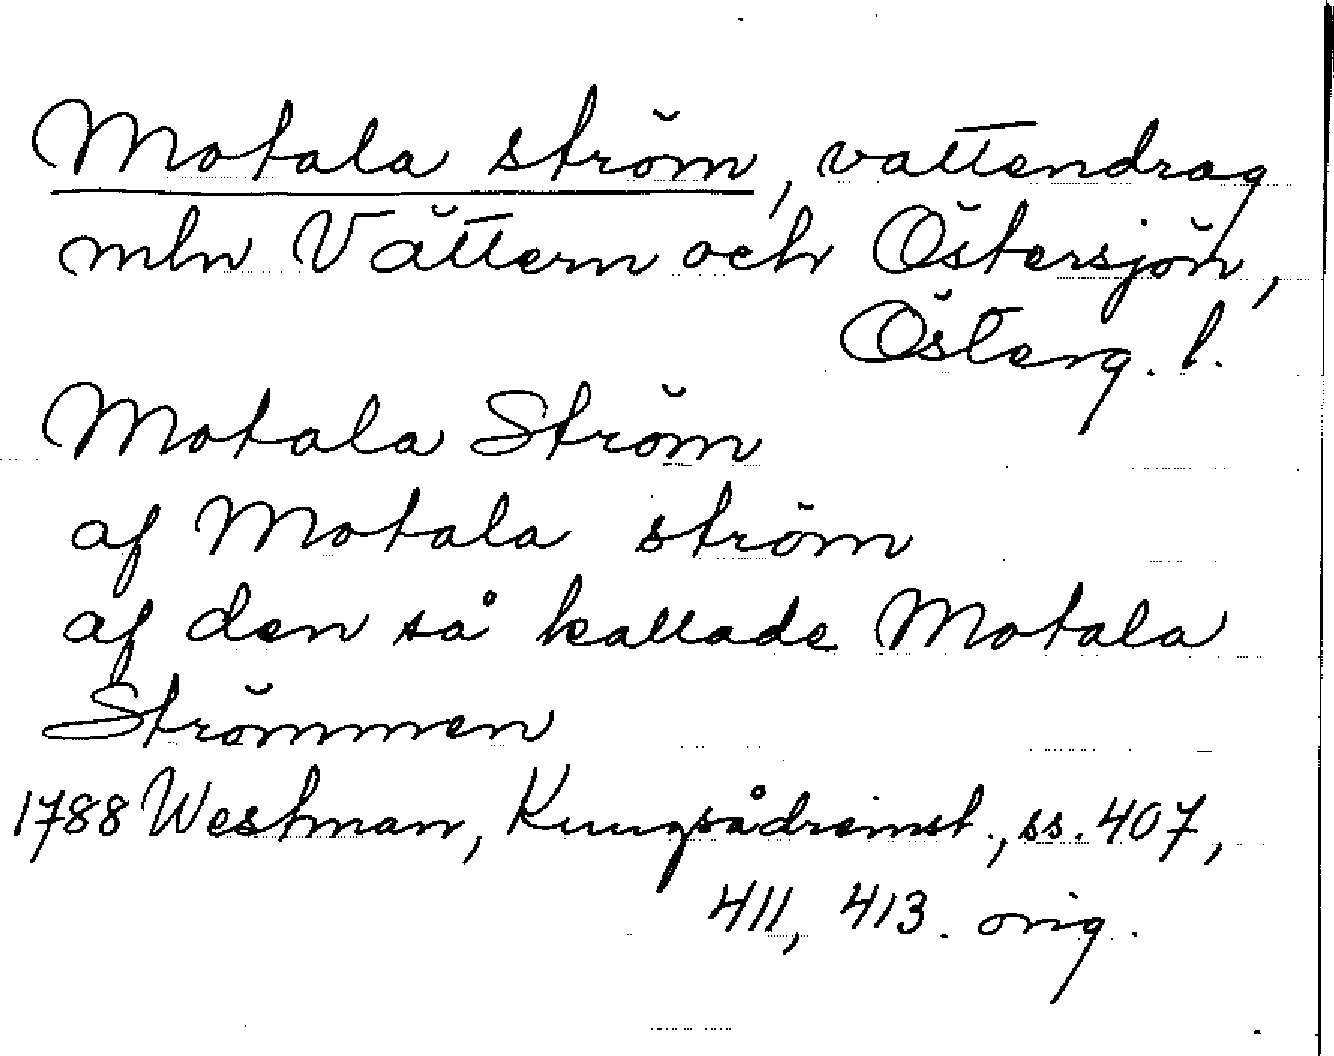 Motala ström, vattendrag
mln Vättern och Östersjön,
Österg. l.
Motala Ström
af Motala ström
af den så kallade Motala
Strömmen
1788 Westman, Kungsådreinst., ss. 407,
411, 413. orig.